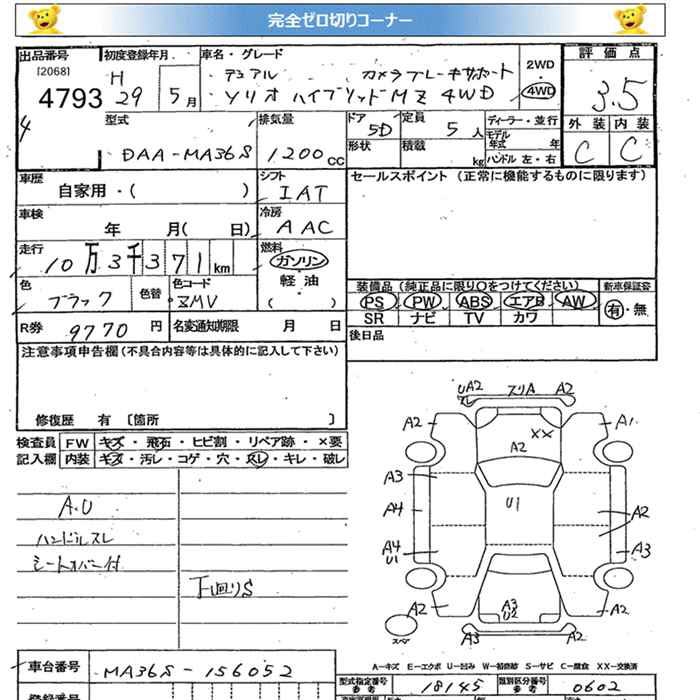 完全ゼロ切りコーナー
出品番号
[2068]
4793
4
初度登録年月
H
29年 5月
車名・グレード
デュアル カメラブレーキサポート
ソリオハイブリッドMZ 4WD
2WD
・
4WD
評価点
3.5
外装 内装
C C
型式
DAA-MA36S
排気量
1200cc
ドア
5D
定員
5人
形状
積載
kg
ディーラー・並行
モデル年式 年
ハンドル 左・右
車歴
自家用・( )
シフト
IAT
セールスポイント (正常に機能するものに限ります)
車検
年 月( 日)
冷房
AAC
走行
10万3千371km
燃料
ガソリン
軽油
( )
色
ブラック
色替
色コード
ZMV
装備品 (純正品に限り○をつけてください)
PS PW ABS エアB AW
SR ナビ TV カワ
新車保証書
有・無
R券 9770円
名変通知期限 月 日
後日品
注意事項申告欄(不具合内容等は具体的に記入して下さい)
修復歴 有 〔箇所 〕
検査員 FW キズ・飛石・ヒビ割・リペア跡・×要
記入欄 内装 キズ・汚レ・コゲ・穴・スレ・キレ・破レ
A.U
ハンドルスレ
シートカバー付
下回りS
UA2 スリA A2
スレ
A2 A1
XX
A2
A3
U1
A4 A2
A4
U1
A3
A3
U2
A2 A2
スペア
A3 A2
A-キズ E-エクボ U-凹み W-補修跡 S-サビ C-腐食 XX-交換済
車台番号 MA36S-156052
型式指定番号
参考
18145
類別区分番号
参考
0602
登録番号